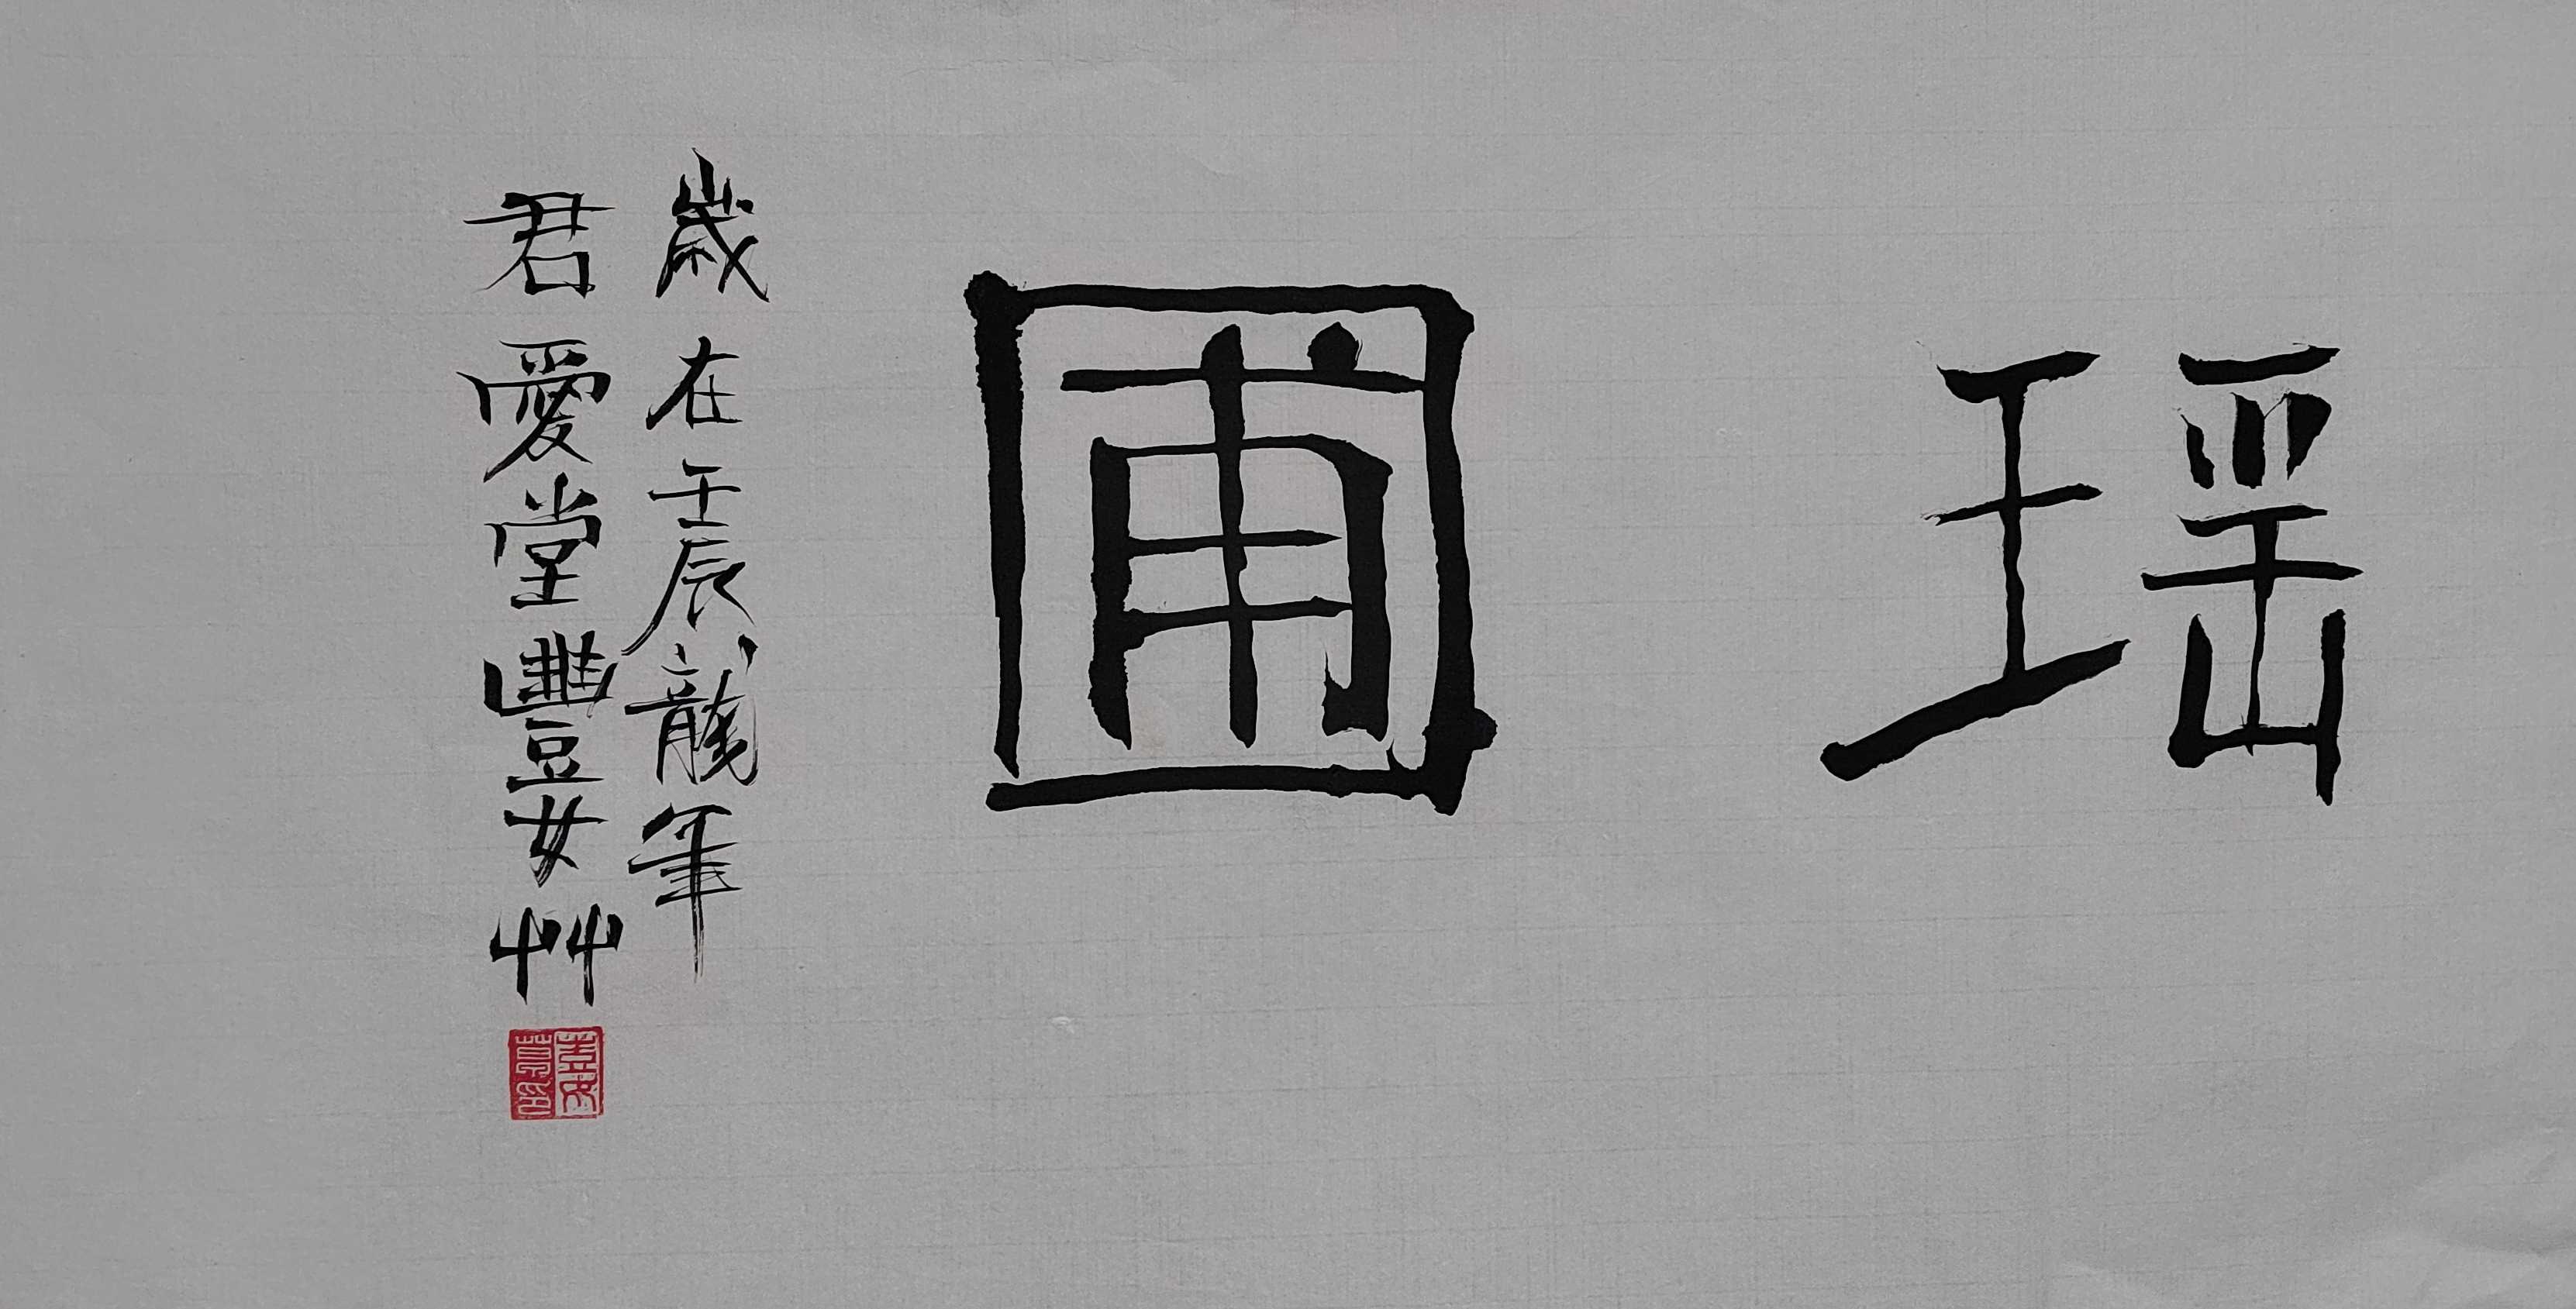 瑶圃
歲在壬辰龍年
君愛堂豐女艸